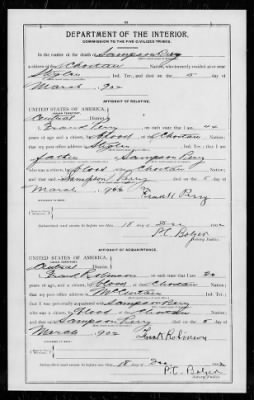 DEPARTMENT OF THE INTERIOR.
COMMISSION TO THE FIVE CIVILIZED TRIBES.
In the matter of the death of Sampson Perry
a citizen of the Choctaw Nation, who formerly resided at or near
Stigler Ind. Ter., and died on the 5 day of
March 1902
AFFIDAVIT OF RELATIVE.
UNITED STATES OF AMERICA,
INDIAN TERRITORY
Central District
I, Perry, on oath state that I am 44
years of age and a citizen, by Blood of the Choctaw Nation;
that my post office address is Stigler Ind. Ter.; that I am
father of Sampson Perry
who was a citizen, by blood of the Choctaw Nation;
and that said Sampson Perry died on the 5 day of
March 190
Frank Perry
Subscribed and sworn to before me this 18 day of Dec 1902
P.C. Bolger
Notary Public.
AFFIDAVIT OF ACQUAINTANCE.
UNITED STATES OF AMERICA,
INDIAN TERRITORY
Central District
I, Frank Robinson, on oath state that I am 20
years of age, and a citizen by Blood of the Choctaw Nation;
that my post office address is McCurtain Ind. Ter.;
that I was personally acquainted with Sampson Perry
who was a citizen, by Blood of the Choctaw Nation;
and that said Sampson Perry died on the 5 day of
March 1902
Frank Robinson
Subscribed and sworn to before me this 18 day of Dec 1902
P.C. Bolger
Notary Public.